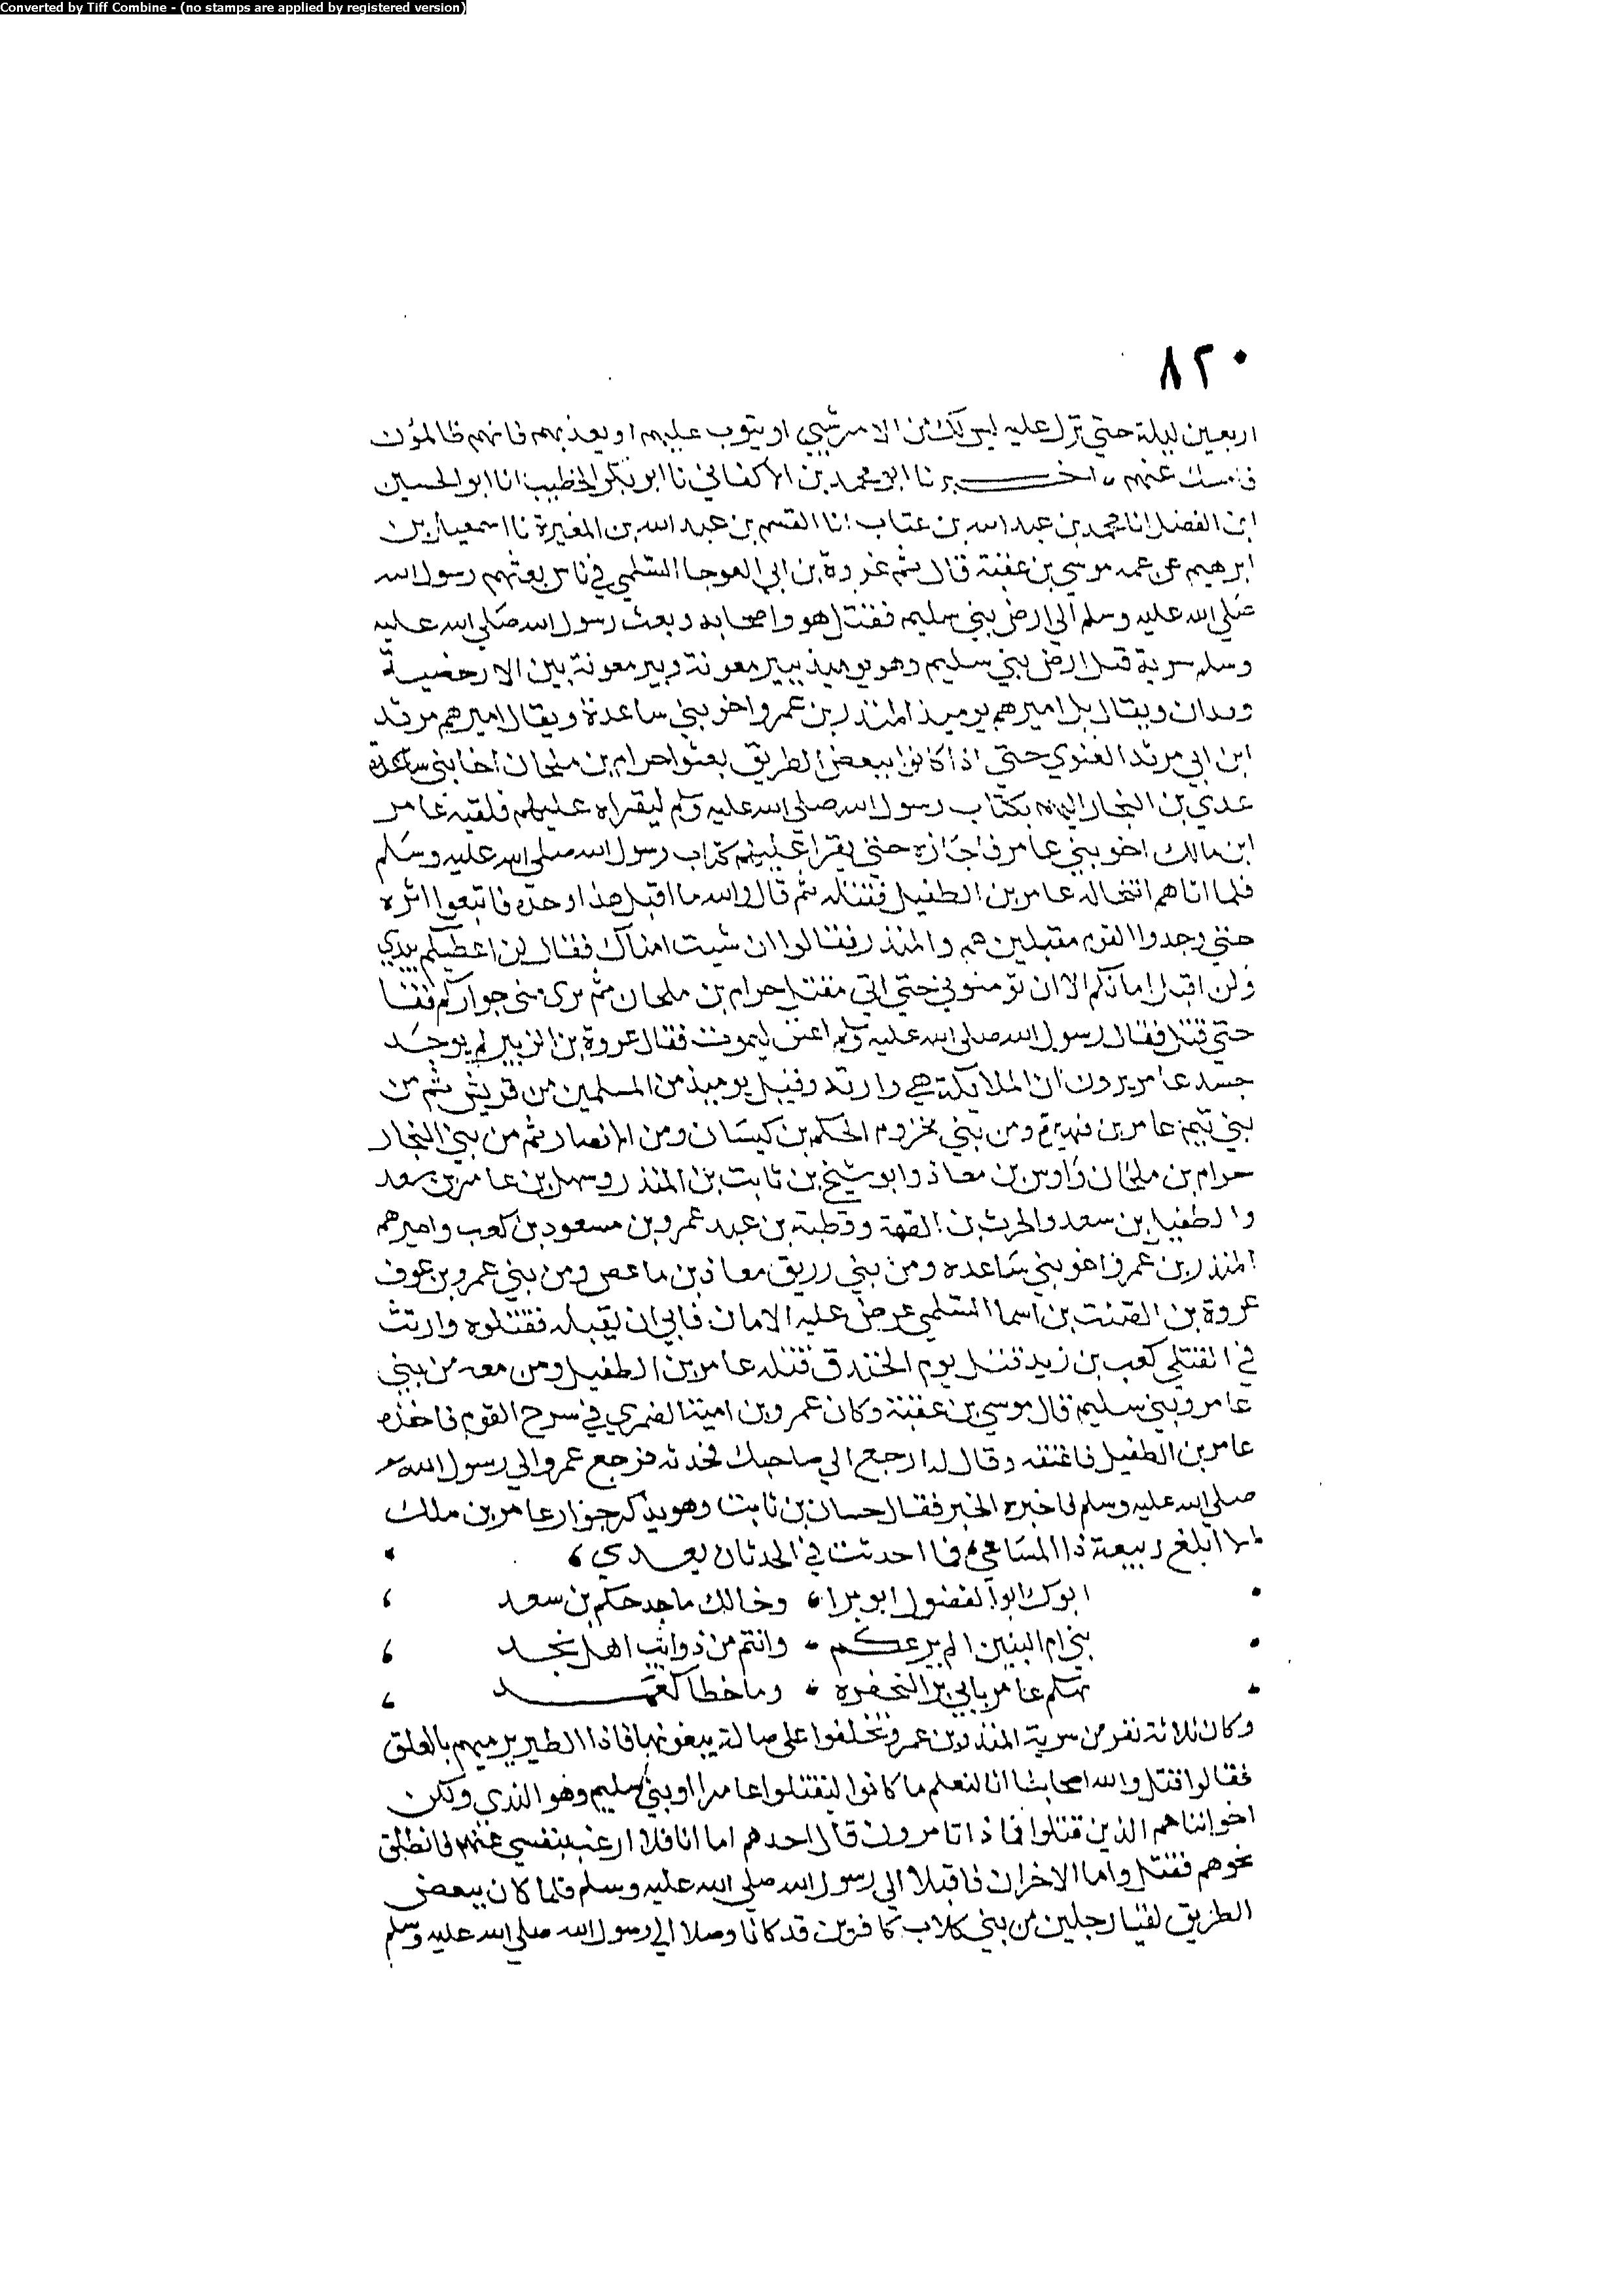 Converted by Tiff Combine - (no stamps are applied by registered version)
٨٢٠
اربعين ليلة حتي نزل عليه ليس لك من الامر شيي او يتوب عليهم او يعذبهم فانهم ظالمون
فامسك عنهم اخبرنا ابو محمد بن الاكفاني نا ابو بكر الخطيب انا ابو الحسين
ابن الفضل انا محمد بن عبد الله بن عتاب انا القسم بن عبد الله بن المغيرة نا اسمعيل بن
ابرهيم عن عمه موسي بن عقبة قال ثم غزوة بن ابي العوجا السلمي في ناس بعثهم رسول الله
صلي الله عليه وسلم الي ارض بني سليم فقتل هو واصحابه وبعث رسول الله صلي الله عليه
وسلم سرية قبل ارض بني سليم وهو يوميذ ببير معونة وبير معونة بين الارحضية
وودان ويقال بل اميرهم يوميذ المنذر بن عمرو اخو بني ساعدة ويقال اميرهم مرثد
ابن ابي مرثد الغنوي حتي اذا كانوا ببعض الطريق بعثوا حرام بن ملحان اخا بني ساعدة
عدي بن النجار اليهم بكتاب رسول الله صلي الله عليه وسلم ليقراه عليهم فلقيه عامر
ابن مالك اخو بني عامر فاجازه حتي يقرا عليهم كتاب رسول الله صلي الله عليه وسلم
فلما اتاهم انتحا له عامر بن الطفيل فقتله ثم قال والله ما اقبل هذا وحده فاتبعوا اثره
حتي وجدوا القوم مقبلين هم والمنذر فقالوا ان شيت امناك فقال لن اعطيكم بيدي
ولن اقبل امانكم الا ان تومنوني حتي اتي مقتل حرام بن ملحان ثم بري مني جواركم
حتي قتل فقال رسول الله صلي الله عليه وسلم اعنق ليموت فقال عروة بن الزبير لم يوجد
جسد عامر يرون ان الملايكة هي وارته وقتل يوميذ من المسلمين من قريش ثم من
بني تيم عامر بن فهيرة ومن بني مخزوم الحكم بن كيسان ومن الانصار ثم من بني النجار
حرام بن ملحان واوس بن معاذ وابو شيخ بن ثابت بن المنذر وسهل بن عامر بن سعد
والطفيل بن سعد والحرث بن الصمة وقطبة بن عبد عمرو بن مسعود بن كعب واميرهم
المنذر بن عمرو اخو بني ساعده ومن بني زريق معاذ بن ماعص ومن بني عمرو بن عوف
عروة بن الصلت بن اسما السلمي عرض عليه الامان فابي ان يقبله فقتلوه وارتث
في القتلي كعب بن زيد قتل يوم الخندق قتله عامر بن الطفيل ومن معه من بني
عامر وبني سليم قال موسي بن عقبة وكان عمرو بن امية الضمري في سرح القوم فاخذه
عامر بن الطفيل فاعتقه وقال له ارجع الي صاحبك فحدثه فرجع عمرو الي رسول الله
صلي الله عليه وسلم فاخبره الخبر فقال حسان بن ثابت وهو يذكر جوار عامر بن ملك
الا ابلغ ربيعة ذا المساعي فما احدثت في الحدثان بعدي
ابوك ابو الفضول ابو برا وخالك ماجد حكم بن سعد
بني ام البنين الم يرعكم وانتم من ذوايب اهل نجد
تهكم عامر بابي برا ليخفره وما خطا كعمد
وكان ثلاثة نفر من سرية المنذر بن عمرو تخلفوا علي ضالة يبغونها فاذا الطير يرميهم بالعلق
فقالوا قتل والله اصحابنا انا لنعلم ما كانوا ليقتلوا عامرا او بني سليم وهو الندي ولكن
اخواننا هم الذين قتلوا فماذا تامرون قال احدهم اما انا فلا ارغب بنفسي عنهم فانطلق
نحوهم فقتل واما الاخران فاقبلا الي رسول الله صلي الله عليه وسلم فلما كان ببعض
الطريق لقيا رجلين من بني كلاب كافرين قد كانا وصلا الي رسول الله صلي الله عليه وسلم